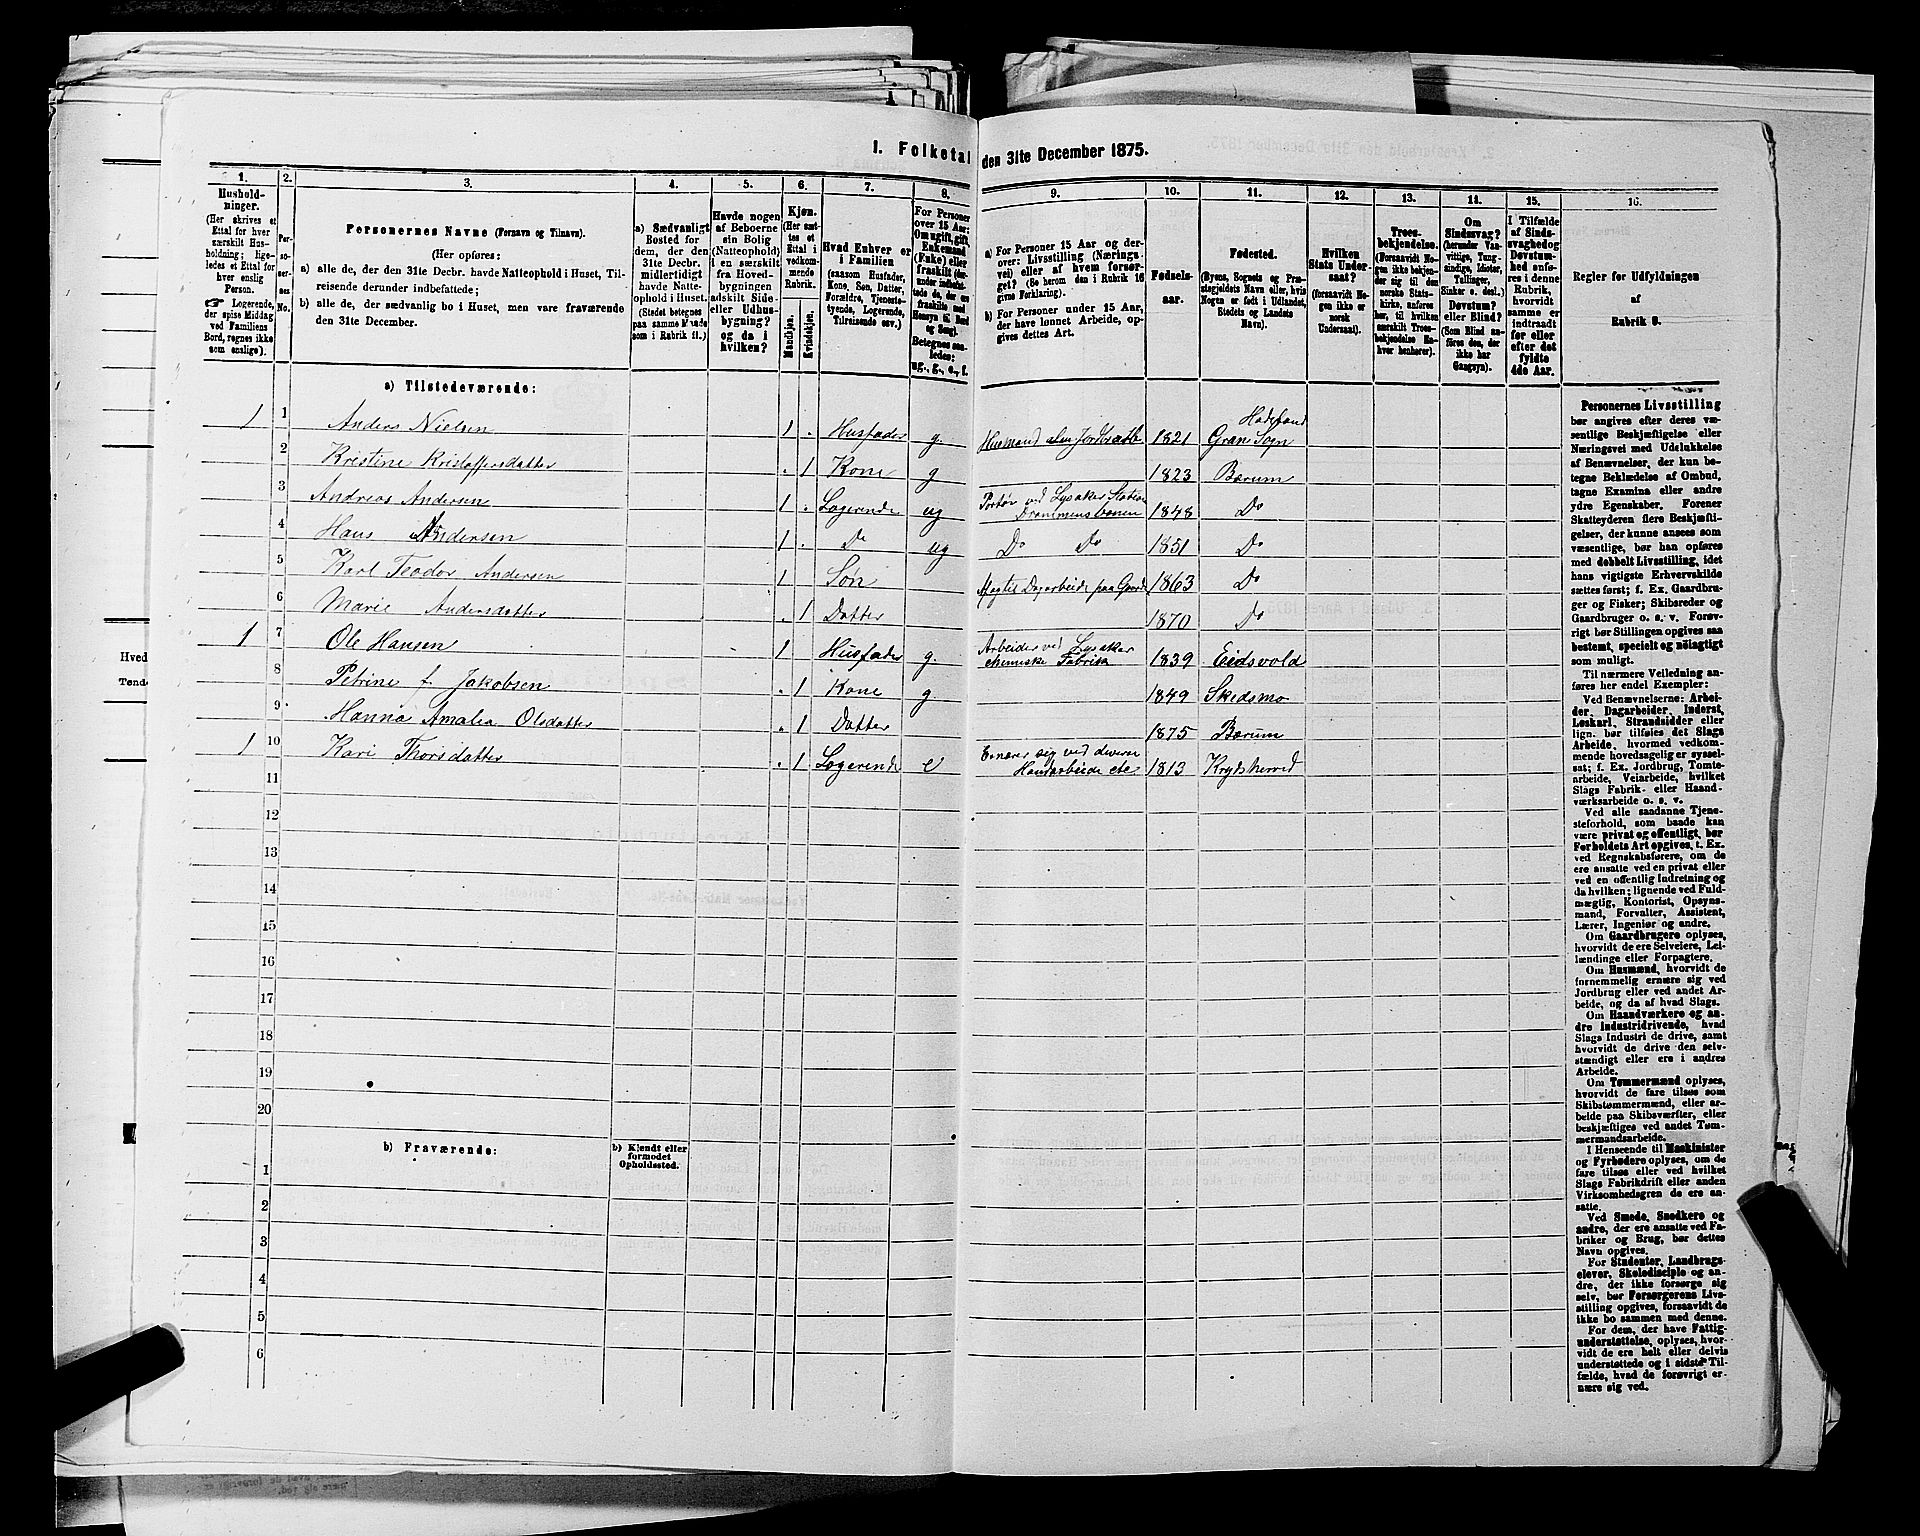 I. Folketal den 31te December 1875.
1. 2. 3. 4. 5. 6. 7. 8. 9. 10. 11. 12. 13. 14. 15. 16.
Hushold-
ninger.
(Her skrives et
Ettal for hver
særskilt Hus-
holdning; lige-
ledes et Ettal for
hver enslig
Person.
☞ Logerende,
der spise Middag
ved Familiens
Bord, regnes ikke
som enslige).
Per-
so-
ner-
nes
No.
Personernes Navne (Fornavn og Tilnavn).
(Her opføres:
a) alle de, der den 31te Decbr. havde Natteophold i Huset, Til-
reisende derunder indbefattede;
b) alle de, der sædvanlig bo i Huset, men vare fraværende
den 31te December.
a) Sædvanligt
Bosted for
dem, der den
31te Decbr.
midlertidigt
havde Natte-
ophold i Huset.
(Stedet betegnes
paa samme Maade
som i Rubrik 11.)
Havde nogen
af Beboerne
sin Bolig
(Natteophold)
i en særskilt
fra Hoved-
bygningen
adskilt Side-
eller Udhus-
bygning?
og da i
hvilken?
Kjøn.
(Her sæt-
tes et
Ettal i
vedkom-
mende
Rubrik.
Mandkjøn.
Kvindekjøn.
Hvad Enhver er
i Familien
(saasom Husfader,
Kone, Søn, Datter,
Forældre, Tjeneste-
tyende, Logerende,
Tilreisende osv.)
For Personer
over 15 Aar:
Om ugift, gift,
Enkemand
(Enke) eller
fraskilt
Betegnes saa-
ledes:
ug., g., e., f.
a) For Personer 15 Aar og der-
over: Livsstilling (Nærings-
vei) eller af hvem forsør-
get? (Se herom den i Rubrik 16
givne Forklaring).
b) For Personer under 15 Aar,
der have lønnet Arbeide, op-
gives dettes Art.
Fødsels-
aar.
Fødested.
(Byens, Sognets og Præ-
stegjeldets Navn eller, hvis
Nogen er født i Udlandet,
Stedets og Landets
Navn).
Hvilken
Stats Under-
saat?
(forsaavidt No-
gen ikke er
norsk
Undersaat).
Troes-
bekjendelse.
(Forsaavidt No-
gen ikke bekjen-
der sig til den
norske Stats-
kirke, anføres
her, til hvilken
særskilt Troes-
bekjendelse En-
hver henhører).
Om
Sindssvag?
(herunder Van-
vittige, Tung-
sindige, Idioter,
Tullinger,
Sinker o. desl.)
Døvstum?
eller Blind?
(Som Blind an-
føres den, der
ikke har
Gangsyn).
I Tilfælde
af Sinds-
svaghed og
Døvstum-
hed anfø-
res i denne
Rubrik,
hvorvidt
samme er
indtraadt
før eller
efter det
fyldte
4de Aar.
Regler for Udfyldningen
af
Rubrik 9.
a) Tilstedeværende:
1 1 Anders Nielsen 1 . Husfader g. Husmand uden Jordbrug 1821 Hadeland Gran Sogn
2 Kristine Kristoffersdatter . 1 Kone g 1823 Bærum
3 Andreas Andersen 1 . Logerende ug Portør ved Lysaker Station Drammensbanen 1848 Do
4 Hans Andersen 1 . Do ug Do Do 1851 Do
5 Karl Teodor Andersen 1 Søn Dagarbeide paa Gaarde 1863 Do
6 Marie Andersdatter . 1 Datter 1870 Do
1 7 Ole Hansen 1 Husfader g. Arbeider ved Lysaker chemiske Fabrik 1839 Eidsvold
8 Petrine f. Jakobsen . 1 Kone g 1849 Skedsmo
9 Hanna Amalia Olsdatter . 1 Datter 1875 Bærum
1 10 Kari Thorsdatter . 1 Logerende e Ernærer sig ved diverse Handarbeide etc 1813 Krydsherred
11
12
13
14
15
16
17
18
19
20
b) Fraværende:
b) Kjendt eller
formodet
Opholdssted.
1
2
3
4
5
6
Personernes Livsstilling
bør angives efter deres væ-
sentlige Beskjæftigelse eller
Næringsvei med Udelukkelse
af Benævnelser, der kun be-
tegne Beklædelse af Ombud,
tagne Examina eller andre
ydre Egenskaber. Forener
Skatteyderen flere Beskjæfti-
gelser, der kunne ansees som
væsentlige, bør han opføres
med dobbelt Livsstilling, idet
hans vigtigste Erhvervskilde
sættes først; f. Ex. Gaardbru-
ger og Fisker; Skibsreder og
Gaardbruger o. s. v. Forøv-
rigt bør Stillingen opgives saa
bestemt, specielt og nøiagtigt
som muligt.
Til nærmere Veiledning an-
føres her endel Exempler:
Ved Benævnelserne: Arbei-
der, Dagarbeider, Inderst,
Løskarl, Strandsidder eller
lign. bør tilføies det Slags
Arbeide, hvormed vedkom-
mende hovedsagelig er syssel-
sat; f. Ex. Jordbrug, Tomte-
arbeide, Veiarbeide, hvilket
Slags Fabrik- eller Haand-
værksarbeide o. s. v.
Ved alle saadanne Tjene-
steforhold, som baade kan
være privat og offentligt, bør
Forholdets Art opgives, t. Ex.
ved Regnskabsførere, om de
ere ansatte ved en privat eller
ved en offentlig Indretning og
da hvilken; lignende ved Fuld-
mægtig, Kontorist, Opsyns-
mand, Forvalter, Assistent,
Lærer, Ingeniør og andre.
Om Gaardbrugere oplyses,
hvorvidt de ere Selveiere, Lei-
lændinge eller Forpagtere.
Om Husmænd, hvorvidt de
fornemmelig ernære sig ved
Jordbrug eller ved andet Ar-
beide, og da af hvad Slags.
Om Haandværkere og an-
dre Industridrivende, hvad
Slags Industri de drive, samt
hvorvidt de drive den selv-
stændigt eller ere i andres
Arbeide.
Om Tømmermænd oplyses,
hvorvidt de fare tilsøs som
Skibstømmermænd, eller ar-
beide paa Skibsværfter, eller
beskjæftiges ved andet Tøm-
mermandsarbeide.
I Henseende til Maskinister
og Fyrbødere oplyses, om de
fare tilsøs eller ved hvilket
Slags Fabrikdrift eller anden
Virksomhedsgren de ere an-
satte.
Ved Smede, Snedkere og
andre, der ere ansatte ved Fa-
briker og Brug, bør dettes
Navn opgives.
For Studenter, Landbrugs-
elever, Skoledisciple og an-
dre, der ikke forsørge sig
selv, bør Forsørgerens Livs-
stilling opgives, forsaavidt de
ikke bo sammen med denne.
For dem, der have Fattig-
understøttelse, oplyses, hvor-
vidt de ere helt eller delvis
understøttede og i sidste Til-
fælde, hvad de forøvrigt er-
nære sig ved.
Hved
Tønde